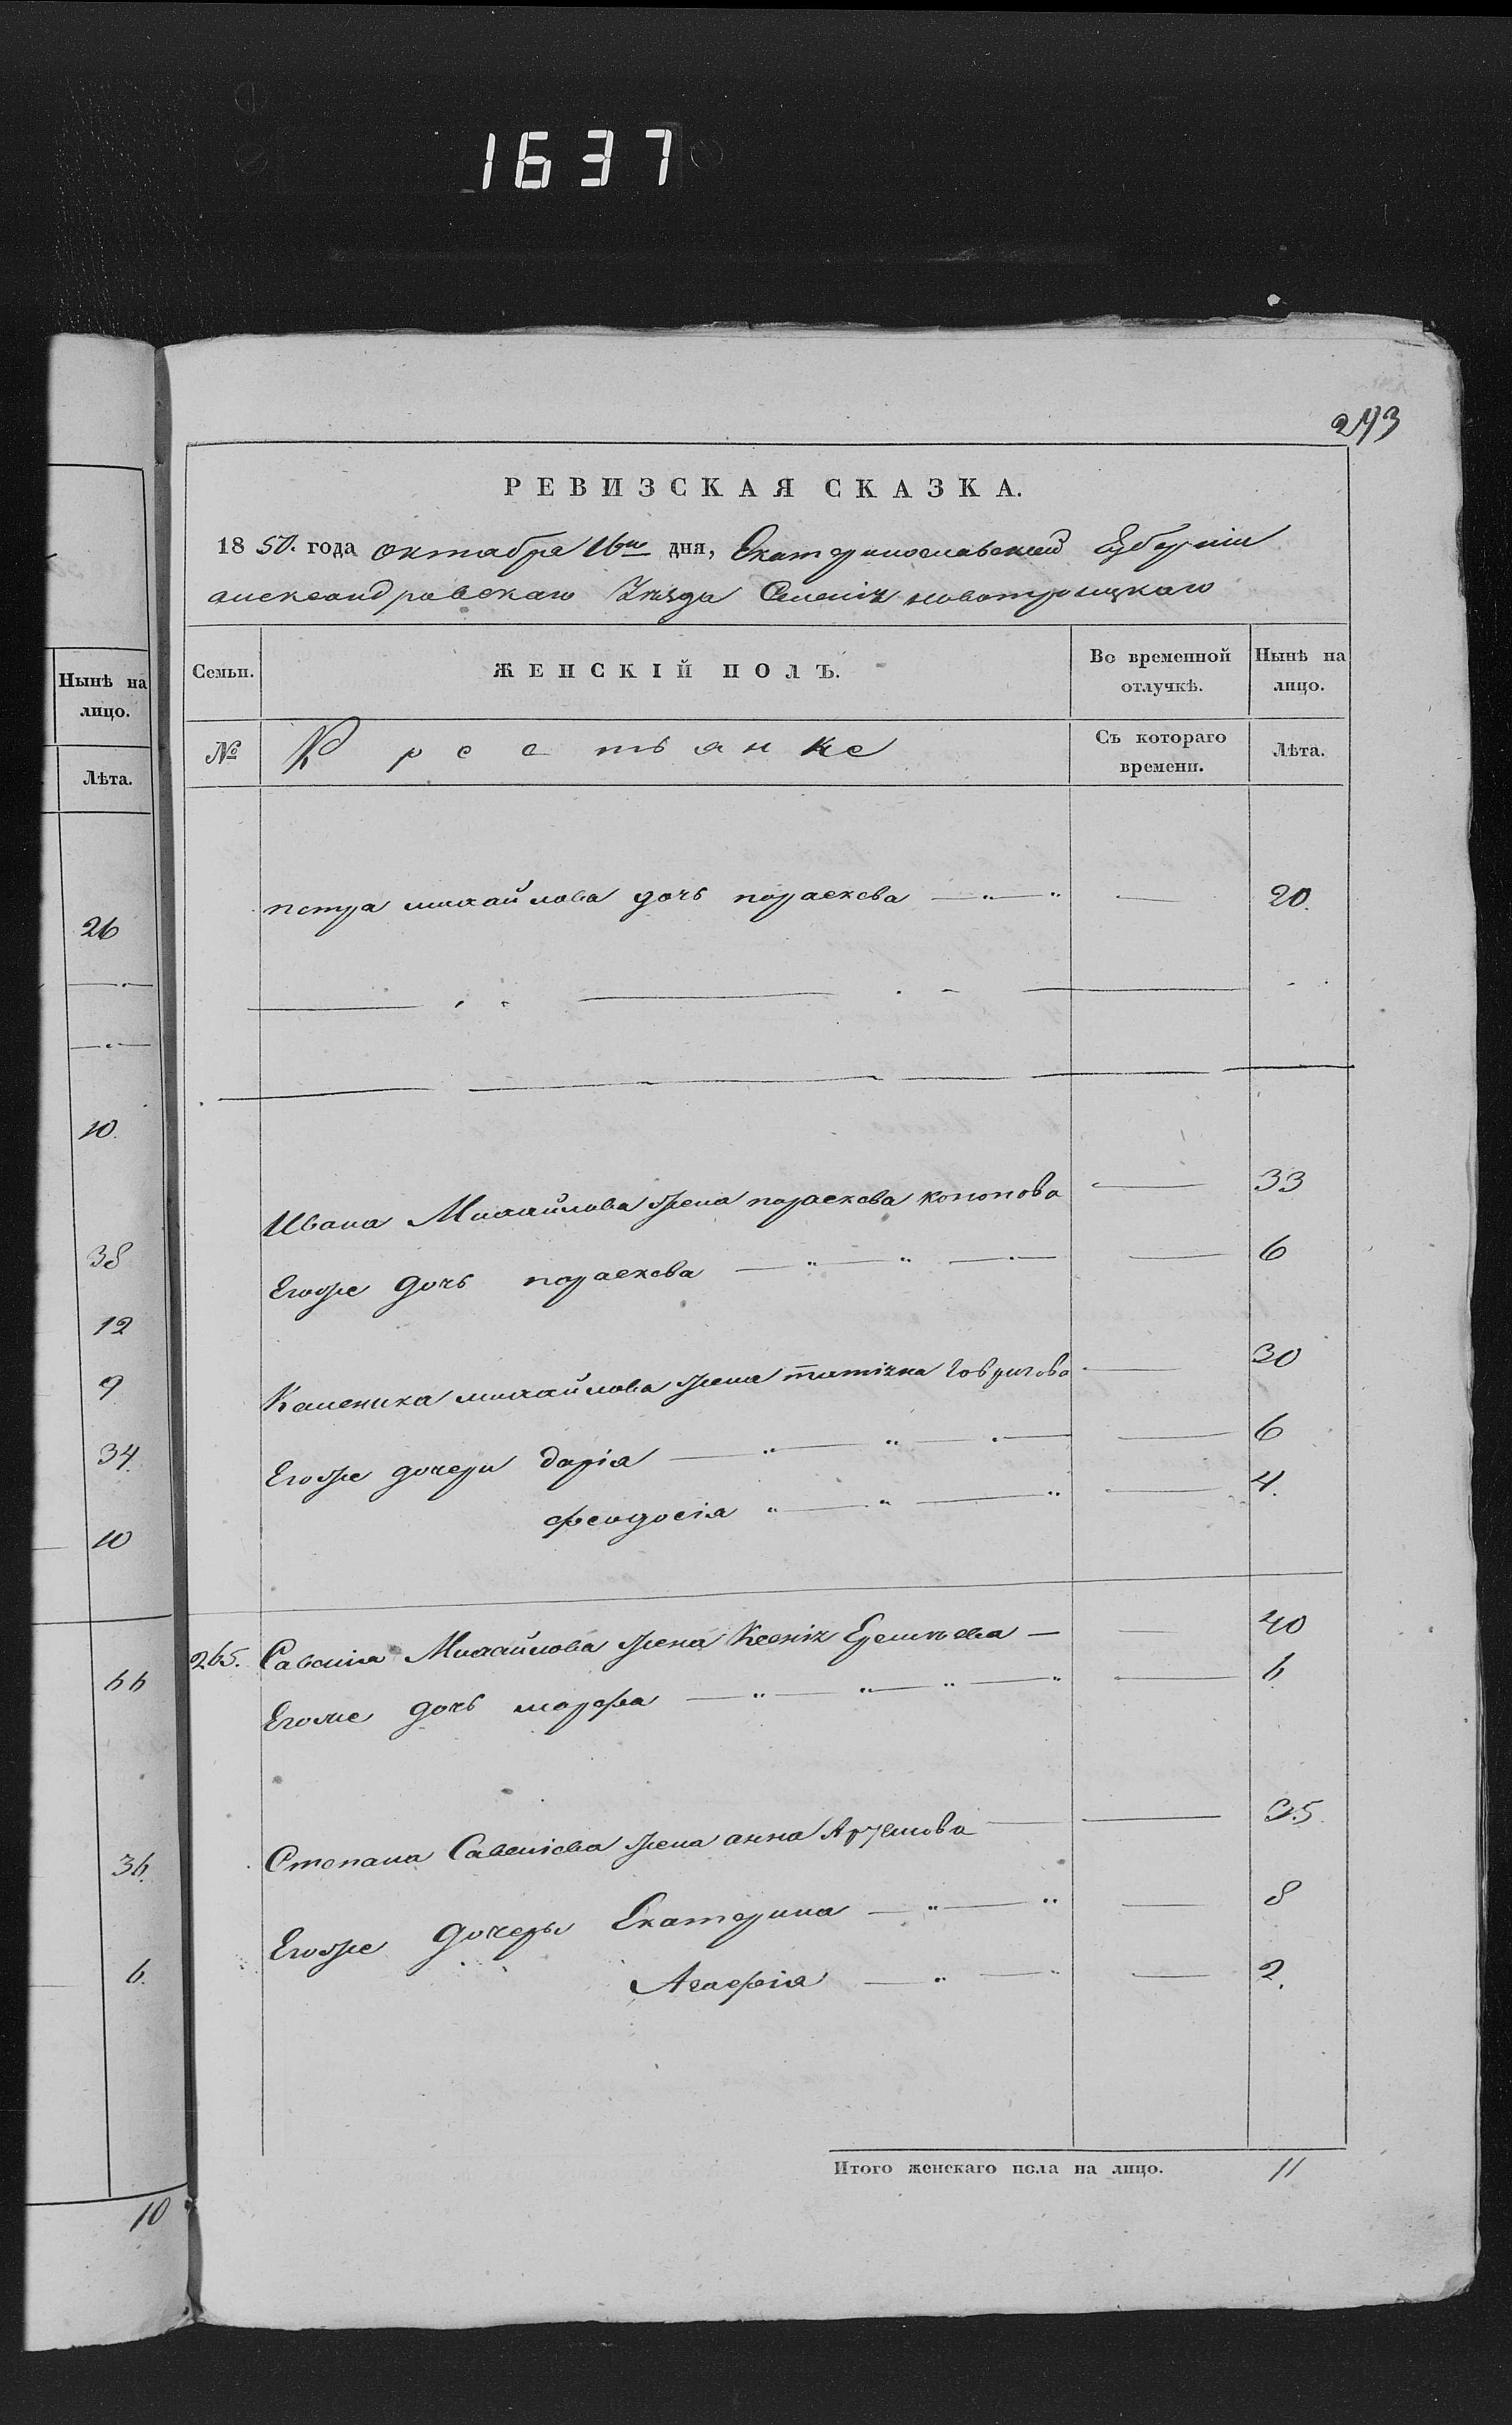 1637
293
РЕВИЗСКАЯ СКАЗКА.
1850. года октабра 16го дня, Екатеринославской Губерніи
александровскаго Уезда Селенія новотроицкаго
Нынѣ на лицо.
Лѣта.
26
10.
38
12
9
34.
10
66
36.
6.
10
Семьи.
ЖЕНСКІЙ ПОЛЪ.
Во временной отлучкѣ.
Нынѣ на лицо.
№
Крестьянке
Съ котораго времени.
Лѣта.
петра михайлова дочь параскева 20.
Ивана Михайлова жена параскева кононова 33
Егоже дочь параскева 6
михайлова жена 30
Егоже дочери дарія 6
феодосія 4.
265. Савелія Михайлова жена Ксенія 40
Егоже дочь марфа 6
Степана Савеліева жена анна Артемова
Егоже дочеры Екатерина 8
Агафія 2.
Итого женскаго пола на лицо. 11